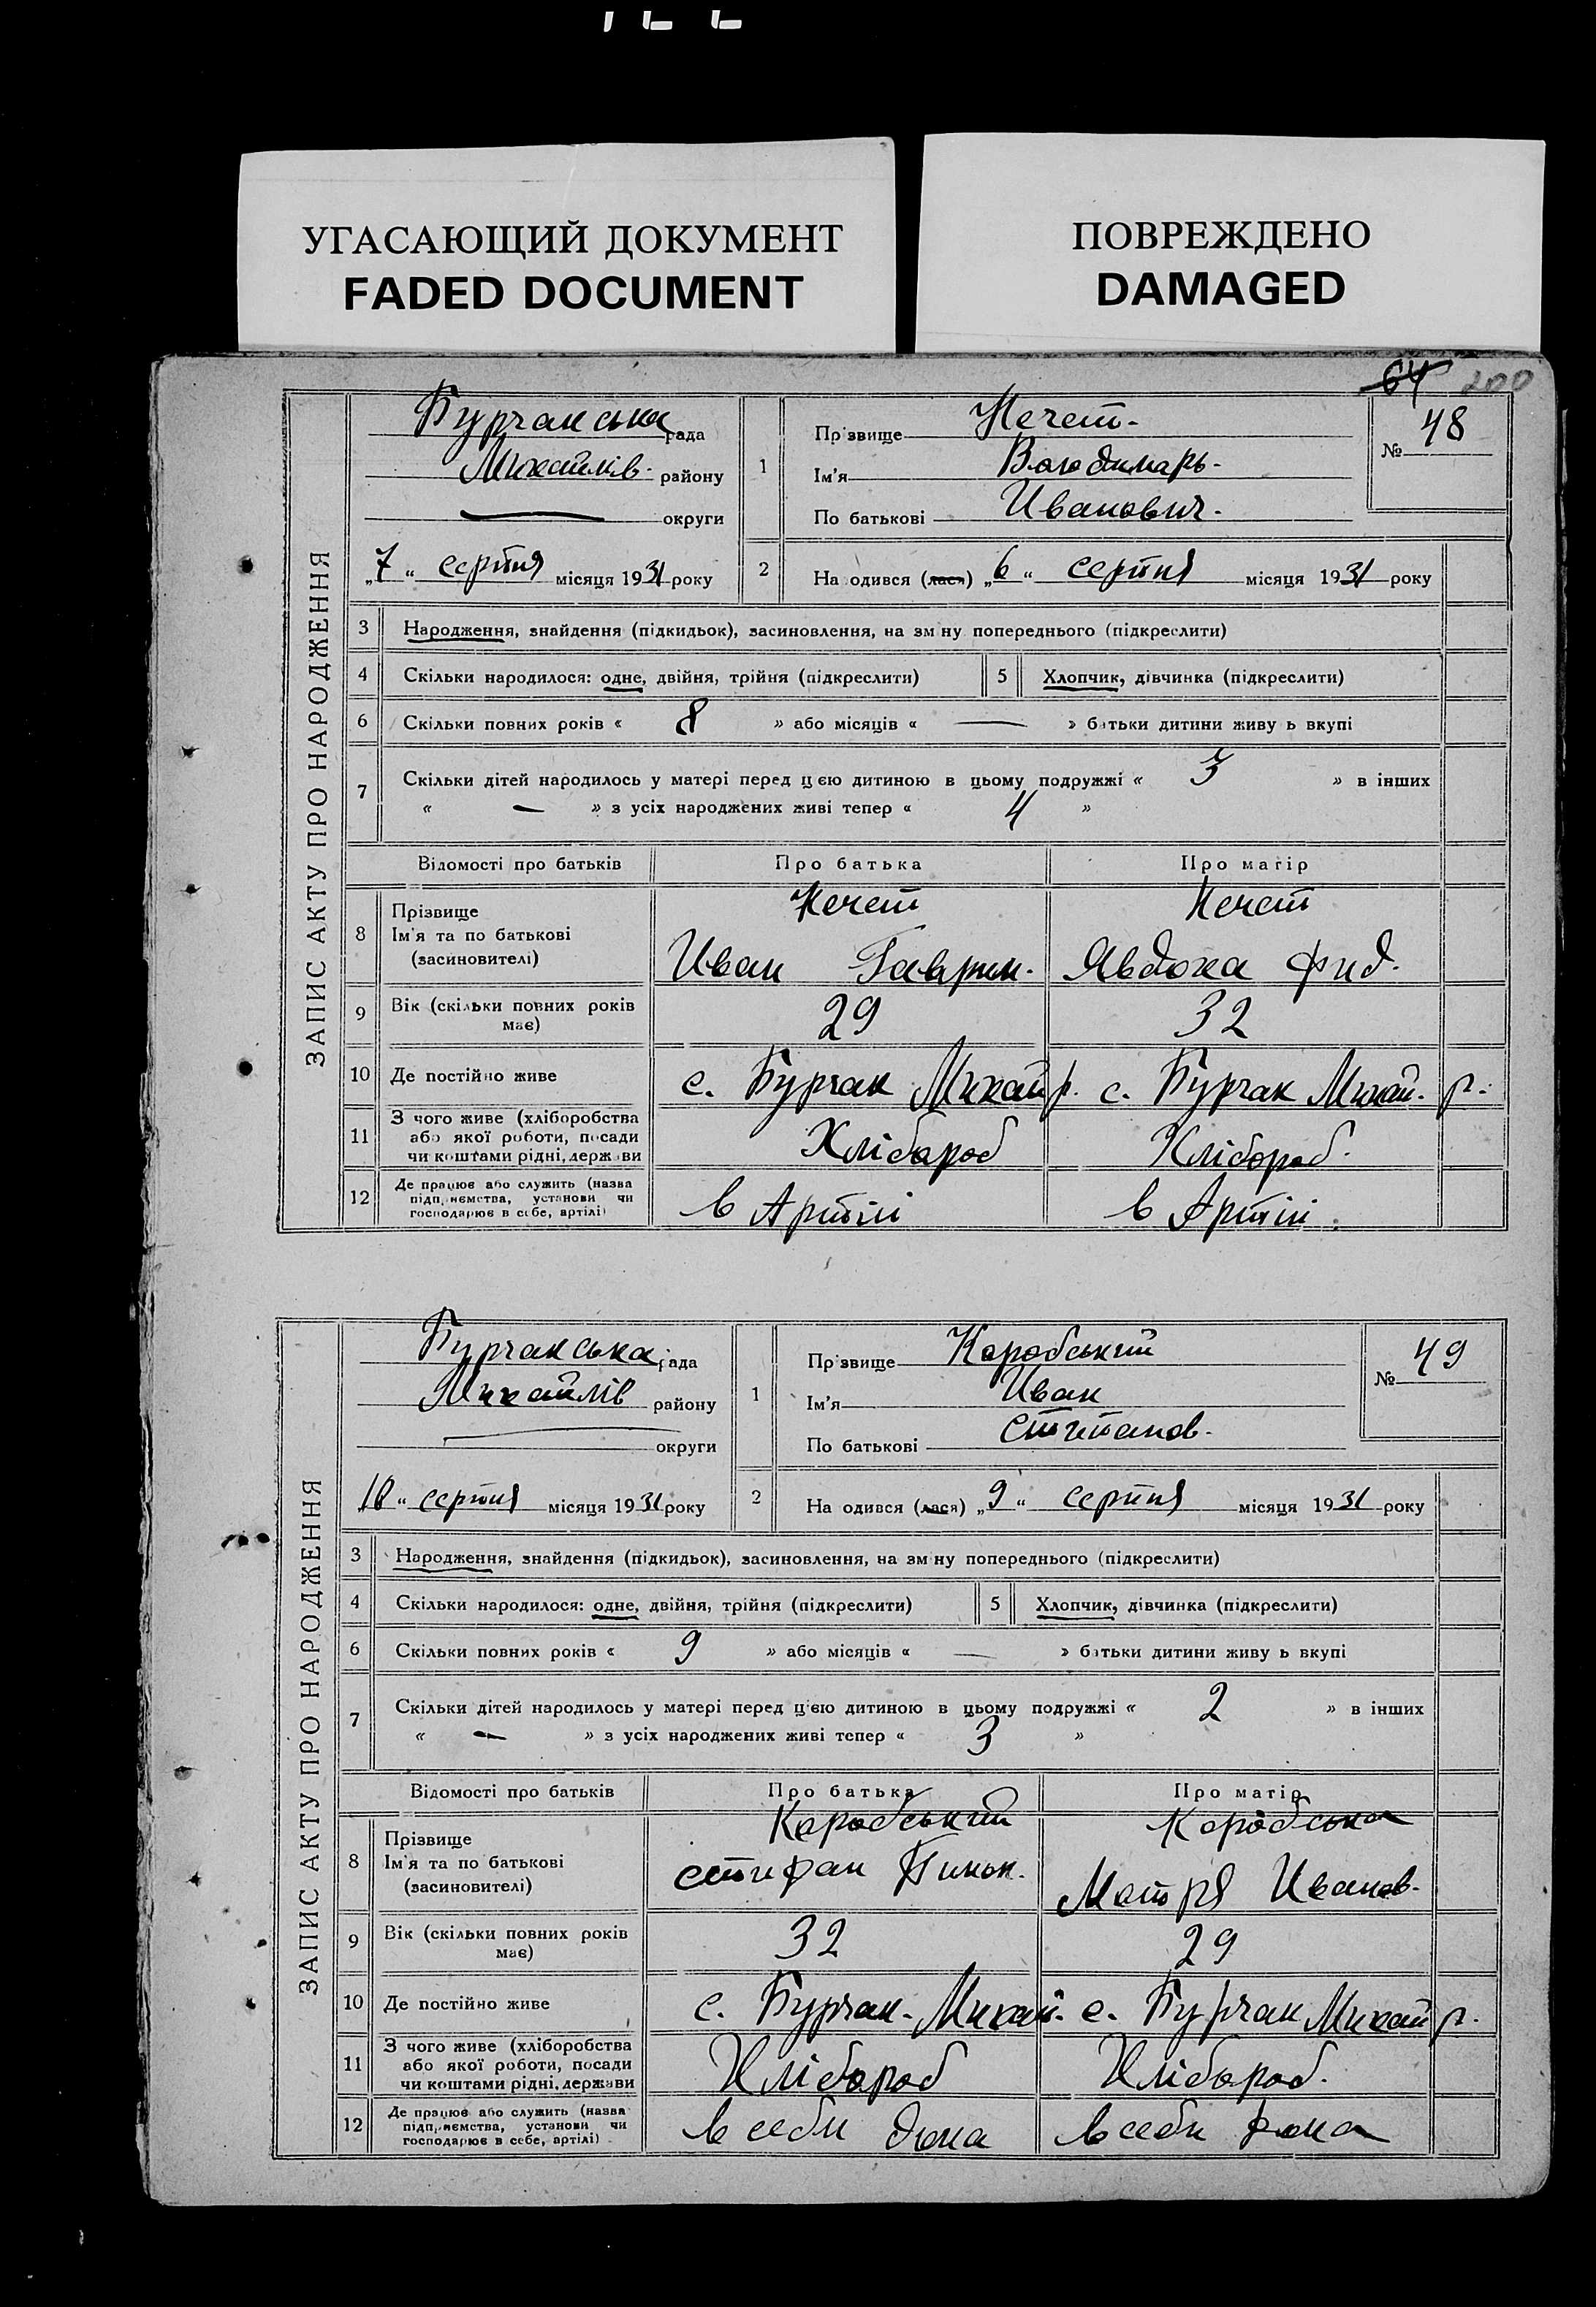 УГАСАЮЩИЙ ДОКУМЕНТ
FADED DOCUMENT
ПОВРЕЖДЕНО
DAMAGED
64 200
ЗАПИС АКТУ ПРО НАРОДЖЕННЯ
Бурчанська рада
Михайлів- району
округи
„7“ серпня місяця 1931 року
1
Прізвище Нечет-
Ім'я Володимарь-
По батькові Иванович-
№ 48
2
На одився (лася) „6“ серпня місяця 1931 року
3 Народження, знайдення (підкидьок), засиновлення, на зм ну попереднього (підкреслити)
4 Скільки народилося: одне, двійня, трійня (підкреслити)
5 Хлопчик, дівчинка (підкреслити)
6 Скільки повних років « 8 » або місяців « — » батьки дитини живу ь вкупі
7 Скільки дітей народилось у матері перед цією дитиною в цьому подружжі « 3 » в інших
« — » з усіх народжених живі тепер « 4 »
Відомості про батьків Про батька Про матір
8 Прізвище Нечет Нечет
Ім'я та по батькові
(засиновителі) Иван Гаврил. Явдоха Фид.
9 Вік (скільки повних років має) 29 32
10 Де постійно живе с. Бурчак Михай р. с. Бурчак Михай. р.
11 З чого живе (хліборобства
або якої роботи, посади
чи коштами рідні, держави Хлібароб Хлібороб.
12 Де працює або служить (назва
підприємства, установи чи
господарює в себе, артілі) в Артілі в Артілі.
ЗАПИС АКТУ ПРО НАРОДЖЕННЯ
Бурчанська рада
Михайлів району
округи
„10“ серпня місяця 1931 року
1
Пр звище Каробський
Ім'я Иван
По батькові Стипанов-
№ 49
2
На одився (лася) „9“ серпня місяця 1931 року
3 Народження, знайдення (підкидьок), засиновлення, на зм ну попереднього (підкреслити)
4 Скільки народилося: одне, двійня, трійня (підкреслити)
5 Хлопчик, дівчинка (підкреслити)
6 Скільки повних років « 9 » або місяців « — » батьки дитини живу ь вкупі
7 Скільки дітей народилось у матері перед цією дитиною в цьому подружжі « 2 » в інших
« — » з усіх народжених живі тепер « 3 »
Відомості про батьків Про батька Про матір
8 Прізвище Каробський Каробська
Ім'я та по батькові
(засиновителі) Стифан Мотря Иванов-
9 Вік (скільки повних років має) 32 29
10 Де постійно живе с. Бурчак- Михай. с. Бурчак Михай р.
11 З чого живе (хліборобства
або якої роботи, посади
чи коштами рідні, держави Хлібароб Хлібароб.
12 Де працює або служить (назва
підприємства, установи чи
господарює в себе, артілі) в себи дома в себи дома